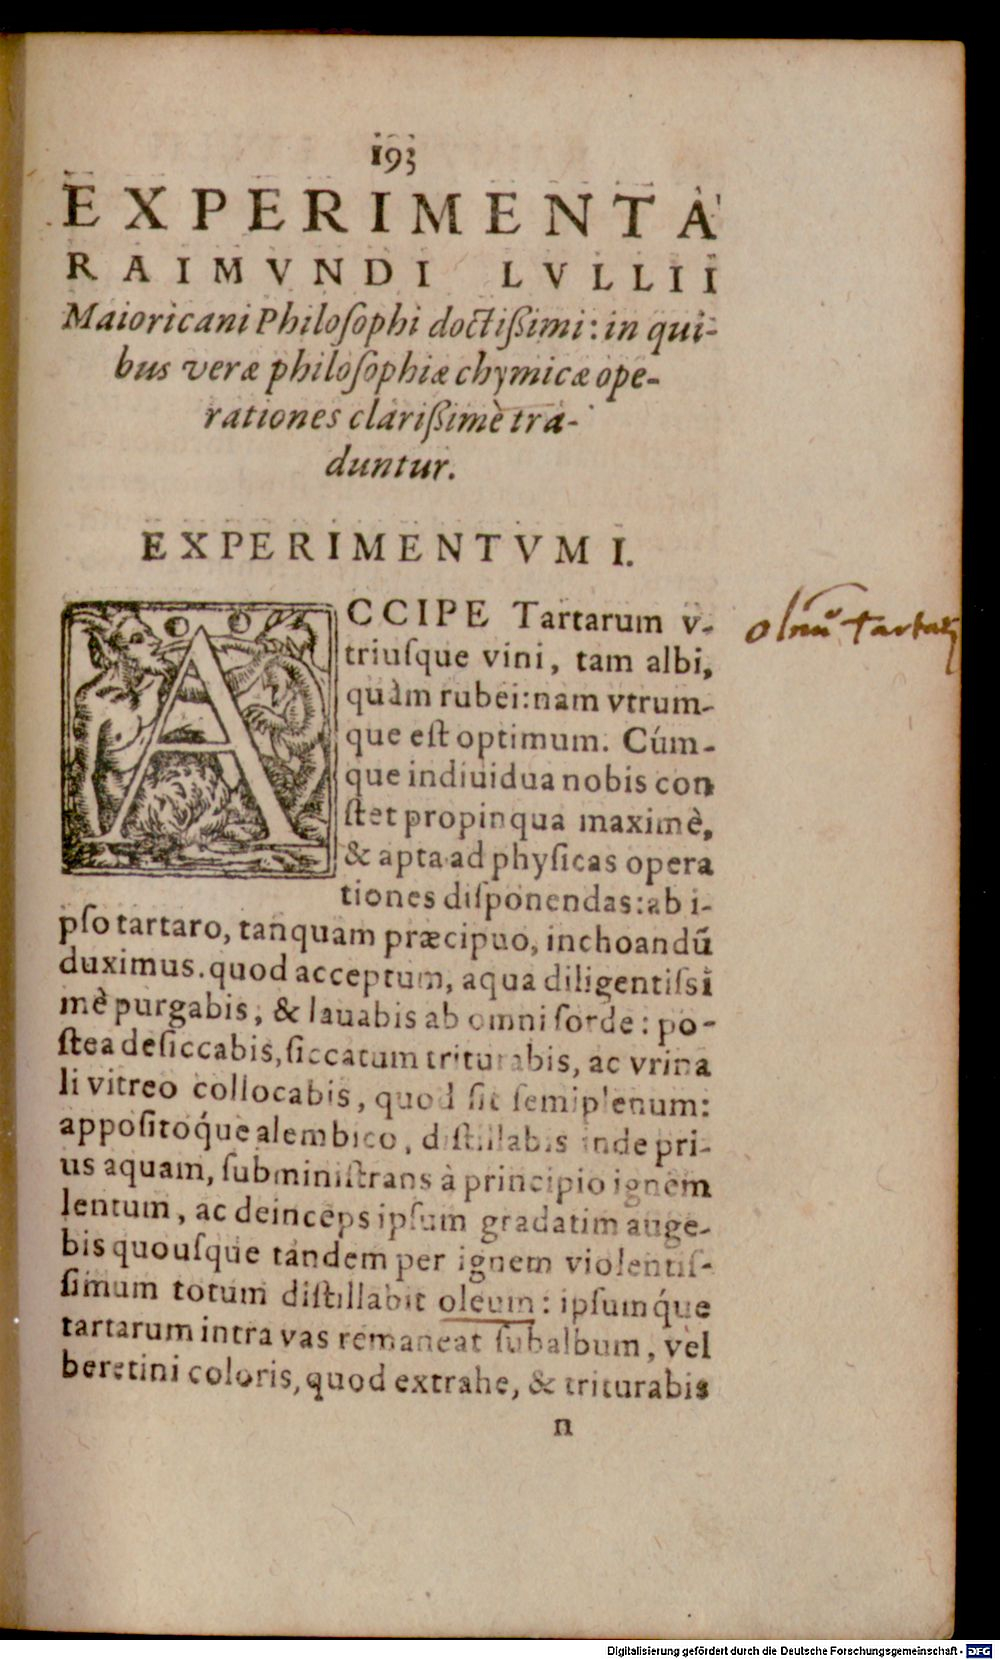 193
EXPERIMENTA
RAIMVNDI LVLLII
Maioricani Philoſophi doctißimi: in qui-
bus veræ philoſophiæ chymicæ ope-
rationes clarißimè tra-
duntur.
EXPERIMENTVM I.
ACCIPE Tartarum v-
triuſque vini, tam albi,
quàm rubei: nam vtrum-
que eſt optimum. Cúm-
que indiuidua nobis con
ſtet propinqua maximè,
& apta ad phyſicas opera
tiones diſponendas: ab i-
pſo tartaro, tanquam præcipuo, inchoandū
duximus. quod acceptum, aqua diligentiſsi
mè purgabis, & lauabis ab omni ſorde: po-
ſtea deſiccabis, ſiccatum triturabis, ac vrina
li vitreo collocabis, quod ſit ſemiplenum:
appoſitoq́ue alembico, diſtillabis inde pri-
us aquam, ſubminiſtrans à principio ignem
lentum, ac deinceps ipſum gradatim auge-
bis quouſque tandem per ignem violentiſ-
ſimum totum diſtillabit oleum: ipſumq́ue
tartarum intra vas remaneat ſubalbum, vel
beretini coloris, quod extrahe, & triturabis
n
oleū tartari
Digitalisierung gefördert durch die Deutsche Forschungsgemeinschaft - DFG